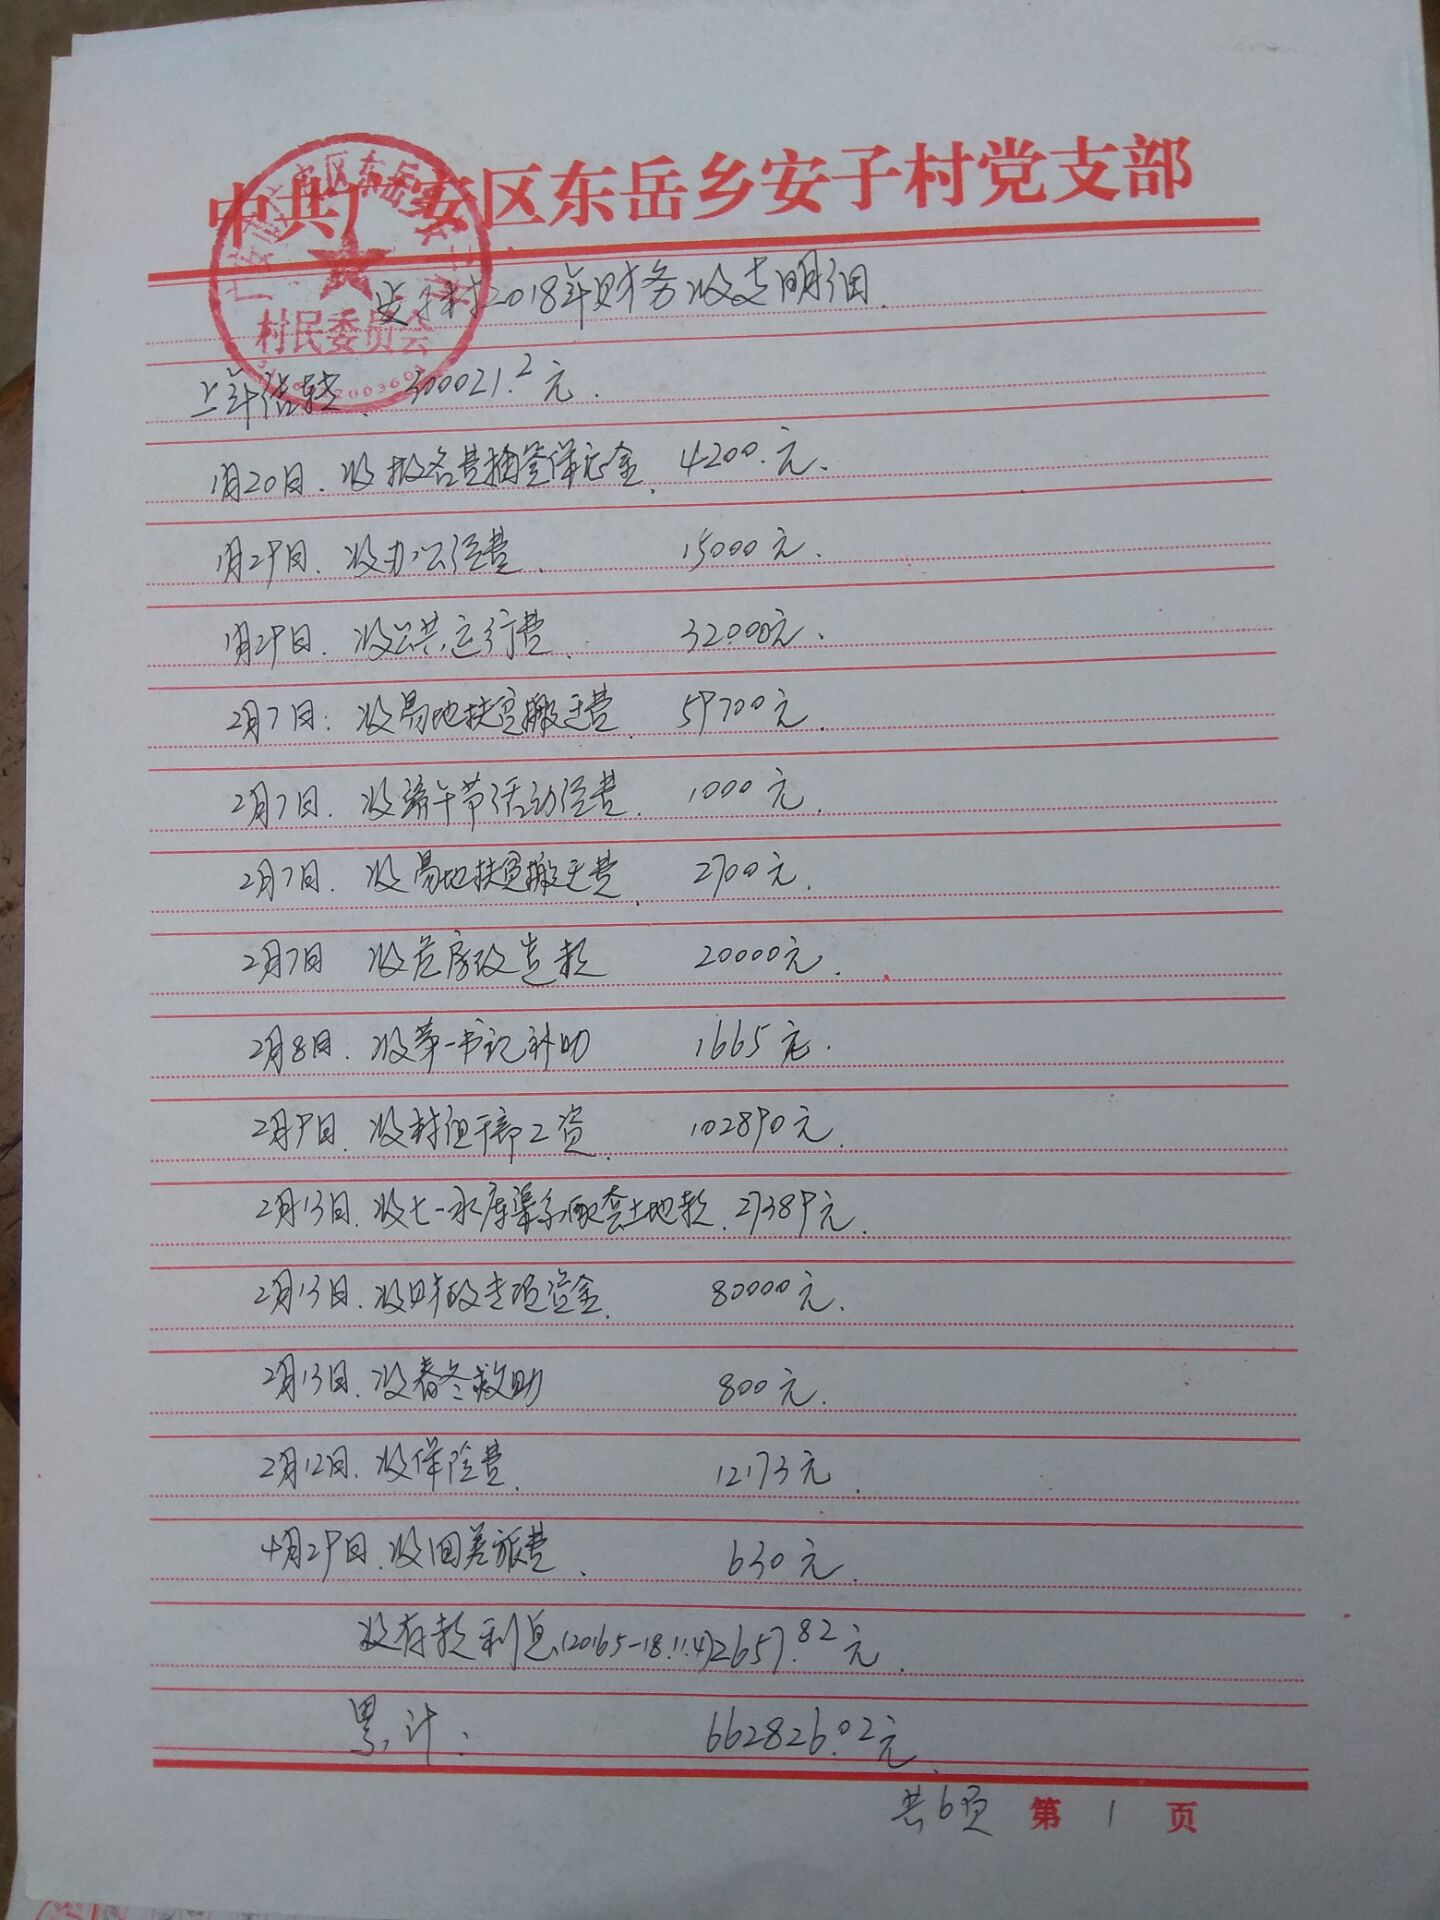 中共广安区东岳乡安子村党支部
区东岳
村民委员会
安子村2018年财务收支明细
上年结转. 300021.2元.
1月20日. 收报名费抽签保证金. 4200.元.
1月29日. 收办公经费. 15000元.
1月29日. 收公共运行费. 32000元.
2月7日: 收易地扶贫搬迁费. 59700元.
2月7日. 收端午节活动经费. 1000元.
2月7日. 收易地扶贫搬迁费. 2700元.
2月7日 收危房改造款 20000元.
2月8日. 收第一书记补助 1665元.
2月9日. 收村组干部工资. 102890元.
2月13日. 收七一水库渠系配套土地款. 27389元.
2月13日. 收财政专项资金. 80000元.
2月13日. 收春冬救助 800元.
2月12日. 收保险费. 12173元.
4月29日. 收回差旅费. 630元.
收存款利息(2016.5-18.11.4)2657.82元.
累计: 662826.02元.
共6页 第 1 页